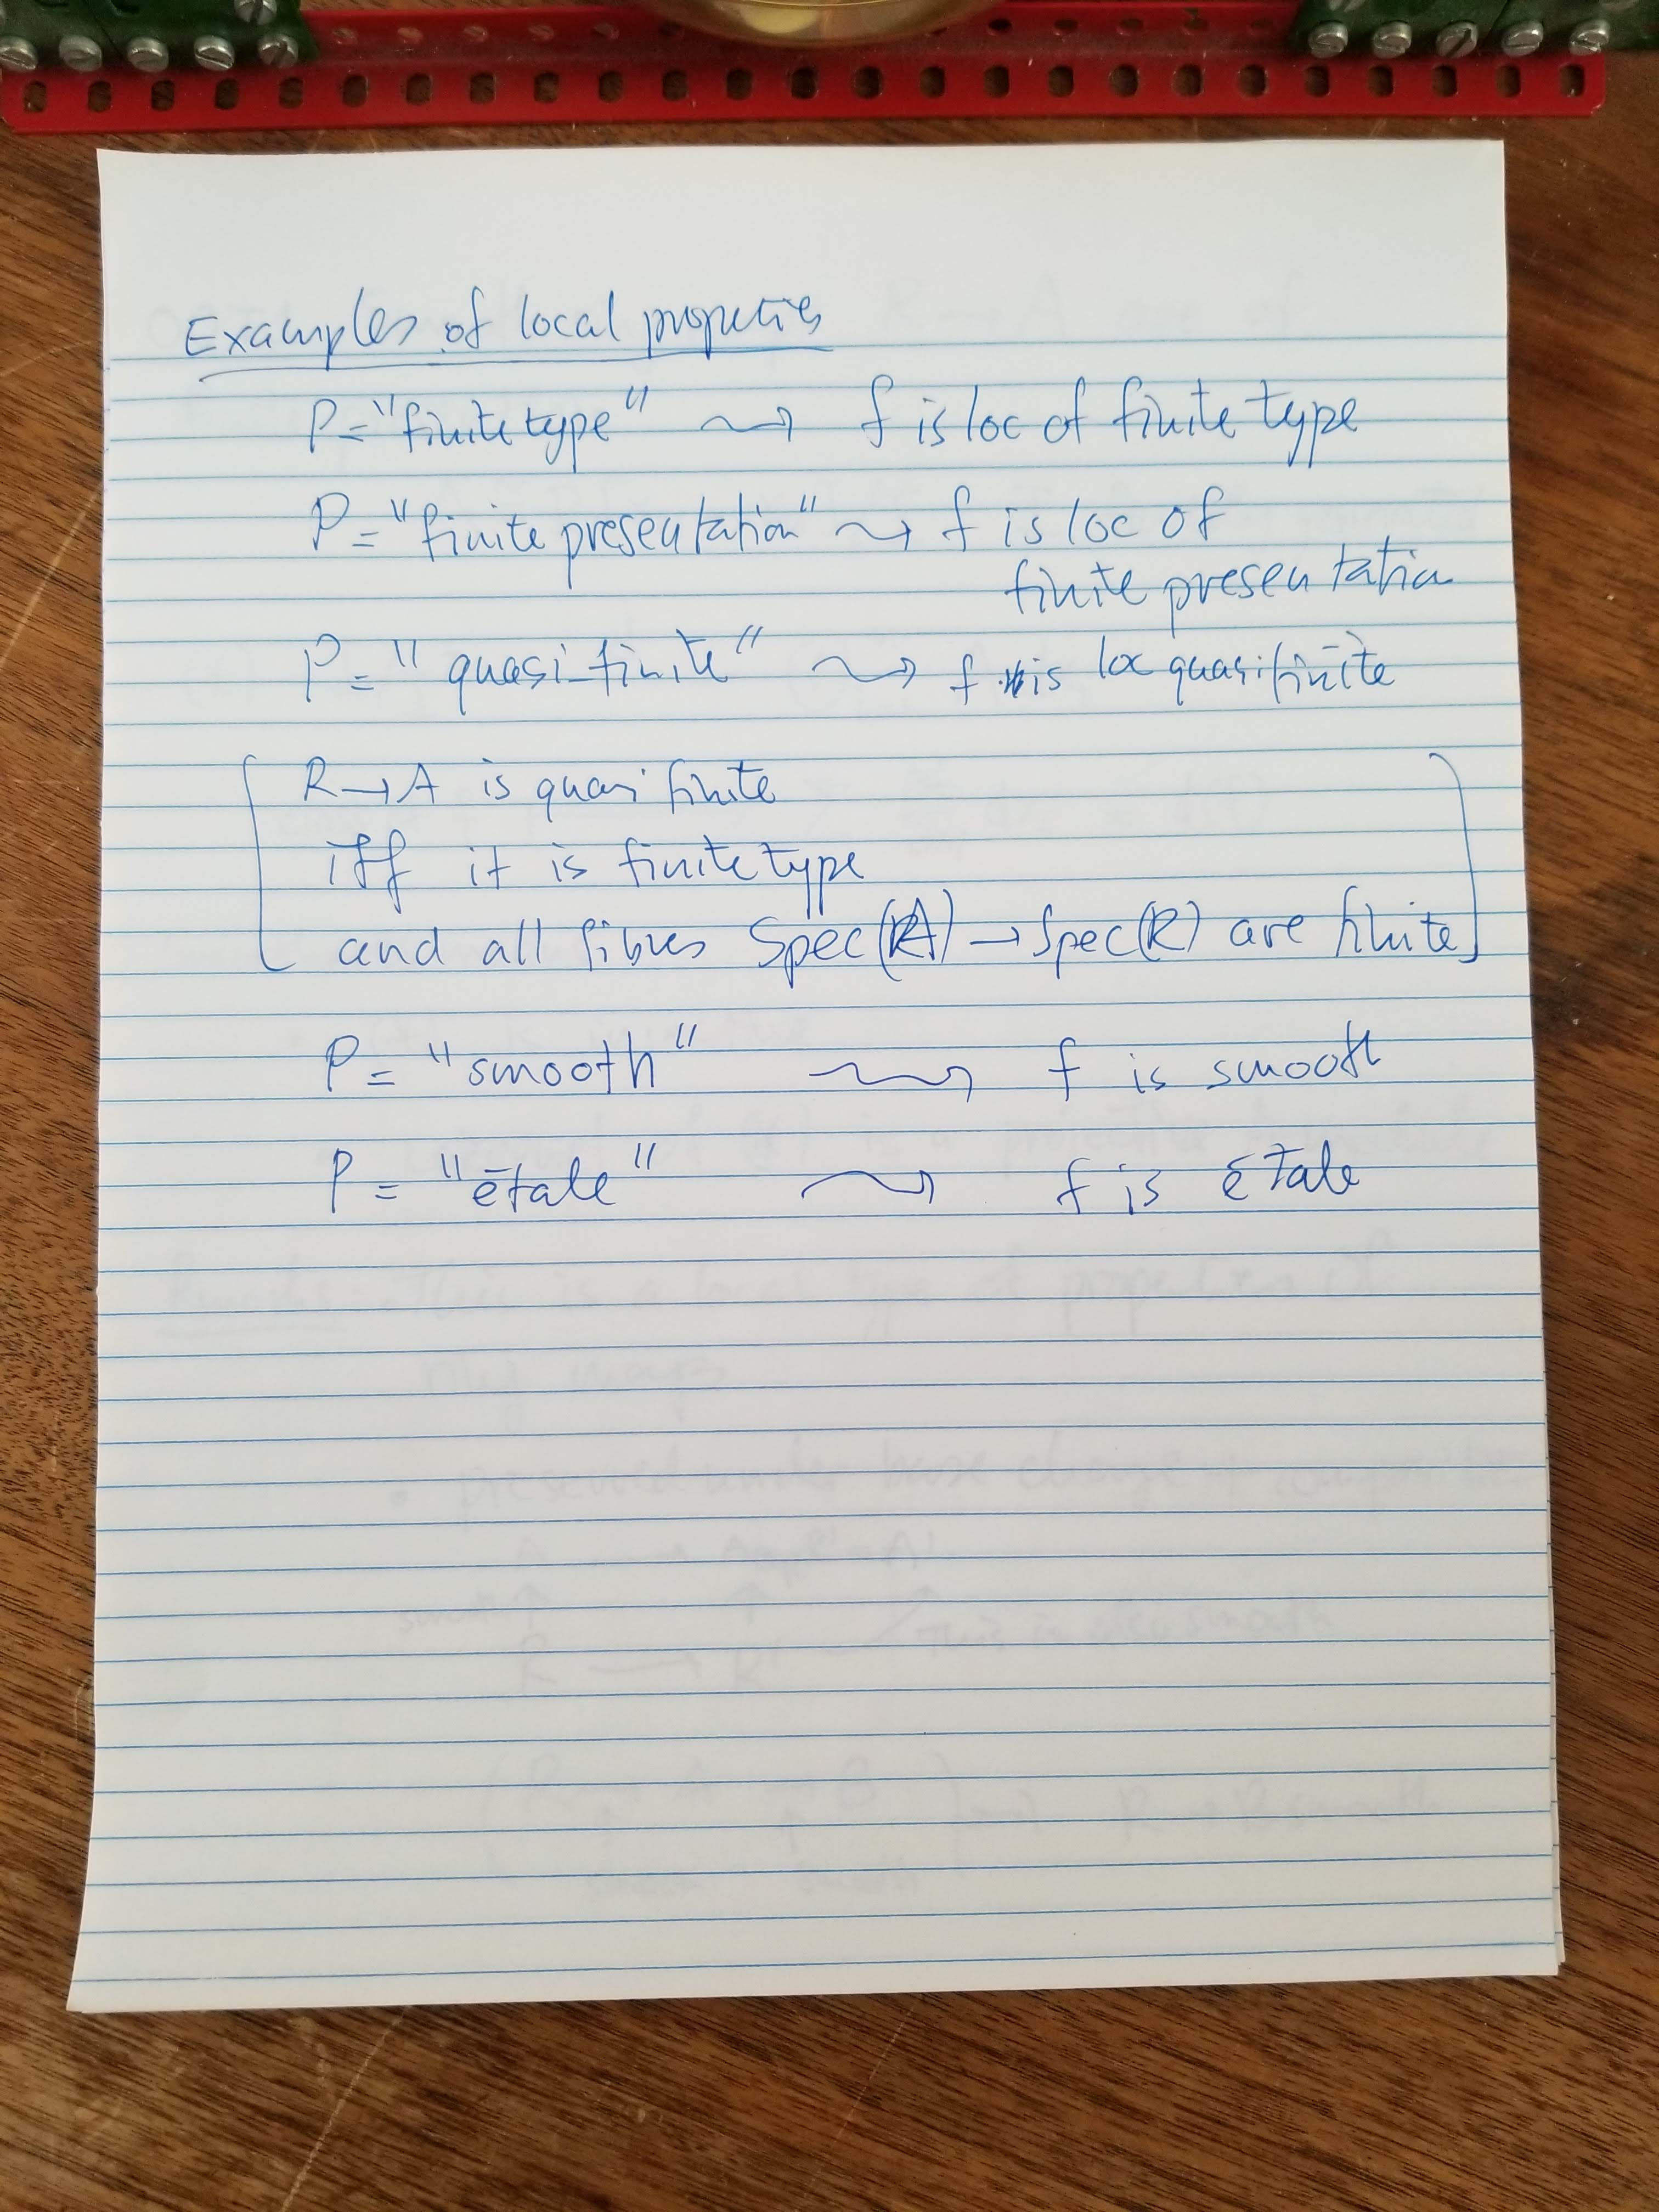 Examples of local properties
P = "finite type" ⇝ f is loc of finite type
P = "finite presentation" ⇝ f is loc of
finite presentation
P = "quasi-finite" ⇝ f is loc quasifinite
[ R → A is quasi finite
iff it is finite type
and all fibres Spec(A) → Spec(R) are finite ]
P = "smooth" ⇝ f is smooth
P = "étale" ⇝ f is étale